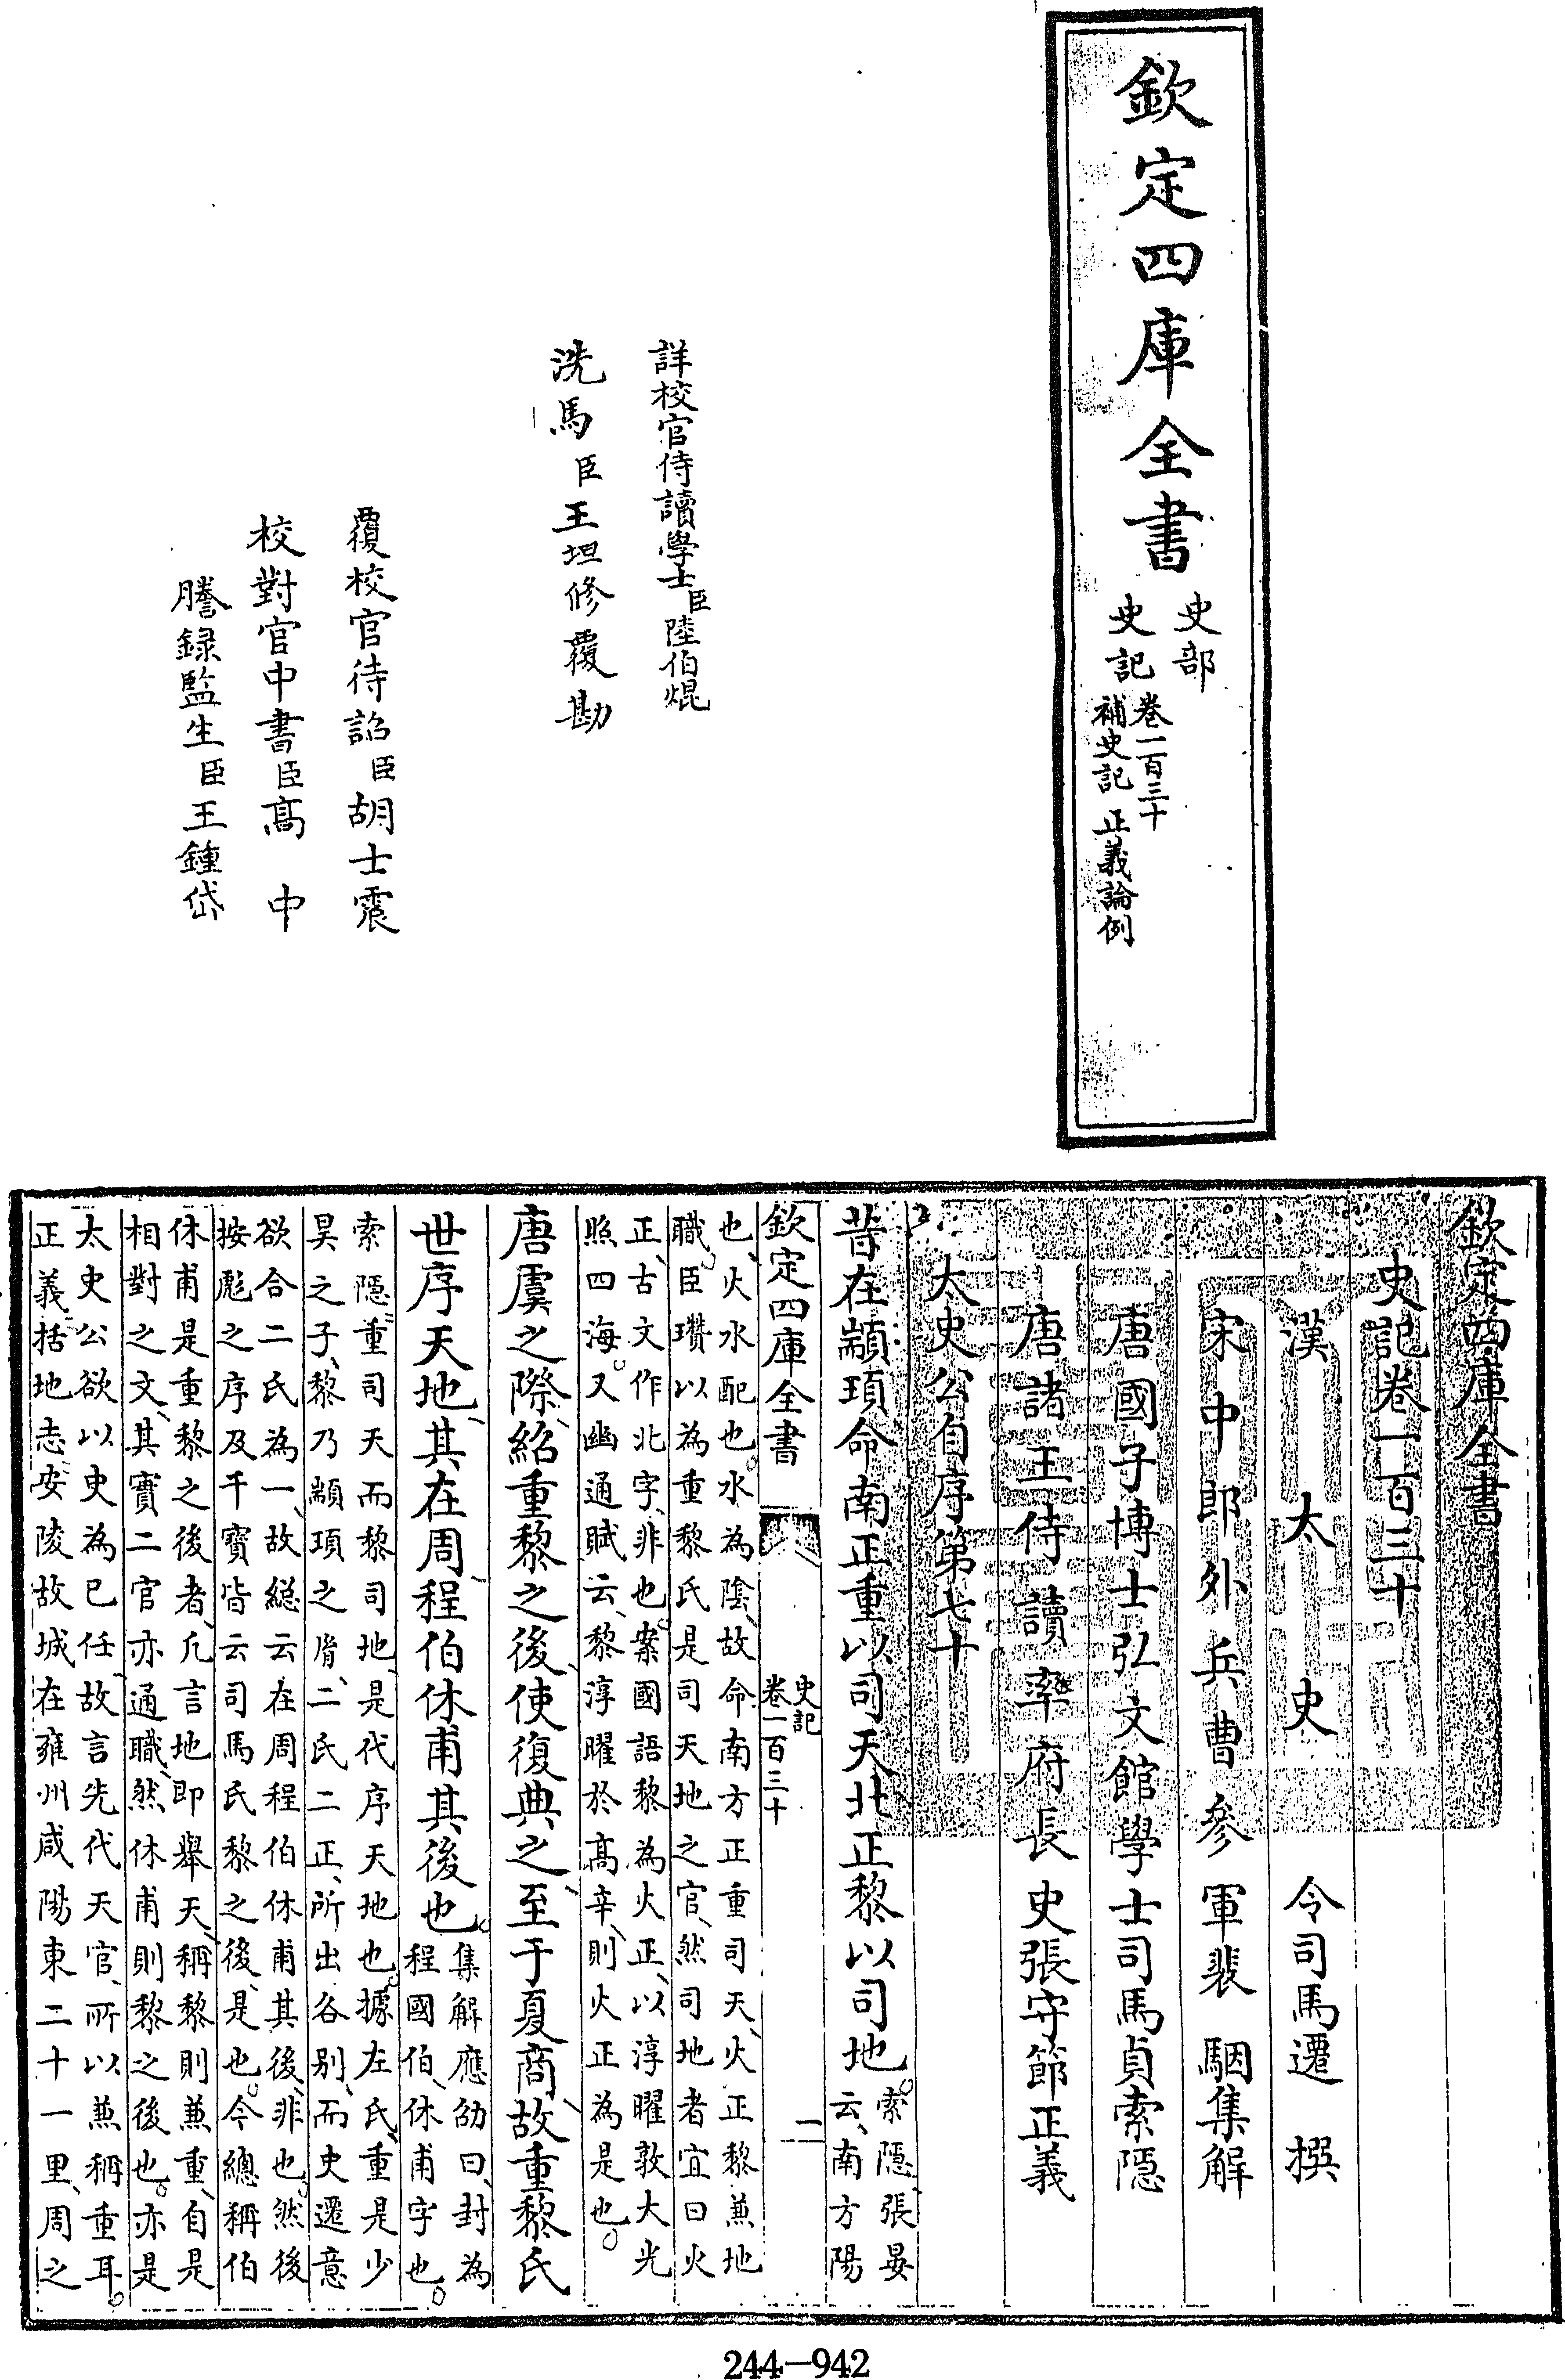 欽定四庫全書
史部
史記
卷一百三十
補史記 正義論例
詳校官侍讀學士臣陸伯焜
洗馬臣王坦修覆勘
覆校官待詔臣胡士震
校對官中書臣高中
謄録監生臣王鍾岱
欽定四庫全書
史記卷一百三十
漢太史令司馬遷撰
宋中郎外兵曹參軍裴駰集解
唐國子博士弘文館學士司馬貞索隱
唐諸王侍讀率府長史張守節正義
太史公自序第七十
昔在顓頊命南正重以司天北正黎以司地
索隱張晏
云南方陽
欽定四庫全書
史記
卷一百三十
二
也火水配也水為陰故命南方正重司天火正黎兼地
職臣瓚以為重黎氏是司天地之官然司地者宜曰火
正古文作北字非也案國語黎為火正以淳曜敦大光
照四海又幽通賦云黎淳曜於髙辛則火正為是也
唐虞之際紹重黎之後使復典之至于夏商故重黎氏
世序天地其在周程伯休甫其後也
集解應劭曰封為
程國伯休甫字也
索隱重司天而黎司地是代序天地也據左氏重是少
昊之子黎乃顓頊之胤二氏二正所出各别而史遷意
欲合二氏為一故総云在周程伯休甫其後非也然後
按彪之序及干寳皆云司馬氏黎之後是也今總稱伯
休甫是重黎之後者凢言地即舉天稱黎則兼重自是
相對之文其實二官亦通職然休甫則黎之後也亦是
太史公欲以史為已任故言先代天官所以兼稱重耳
正義括地志安陵故城在雍州咸陽東二十一里周之
244-942